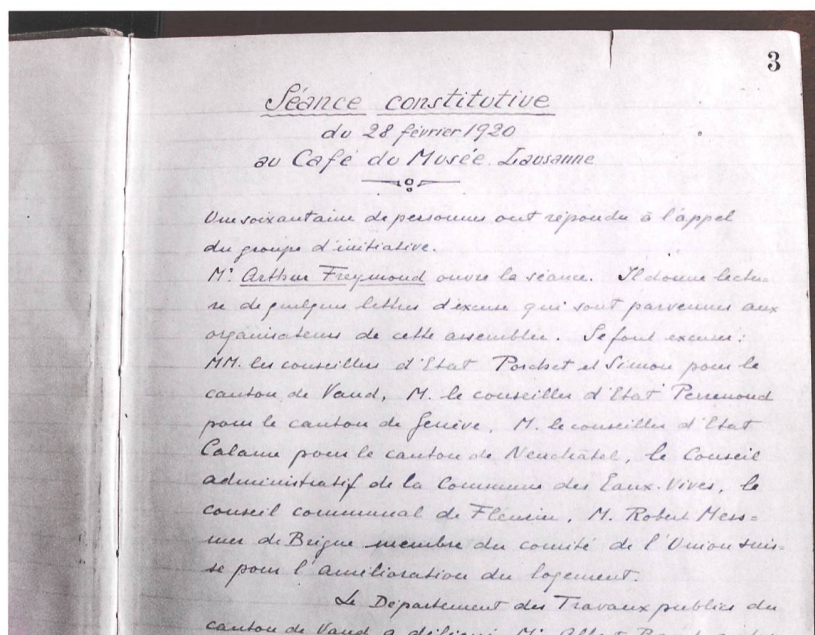 3
Séance constitutive
du 28 février 1920
au Café du Musée. Lausanne
Une soixantaine de personnes ont répondu à l'appel
du groupe d'initiative.
Mr Arthur Freymond ouvre la séance. Il donne lectu-
re de quelques lettres d'excuse qui sont parvenues aux
organisateurs de cette assemblée. Se font excuser:
MM. les conseillers d'Etat Porchet et Simon pour le
canton de Vaud, M. le conseiller d'Etat Perrenoud
pour le canton de Genève, M. le conseiller d'Etat
Calame pour le canton de Neuchâtel, le Conseil
administratif de la Commune des Eaux-Vives, le
conseil communal de Fleurier, M. Robert Mess=
mer de Brigue membre du comité de l'Union suis-
se pour l'amélioration du logement.
Le Département des Travaux publics du
canton de Vaud a délégué Mr Albert